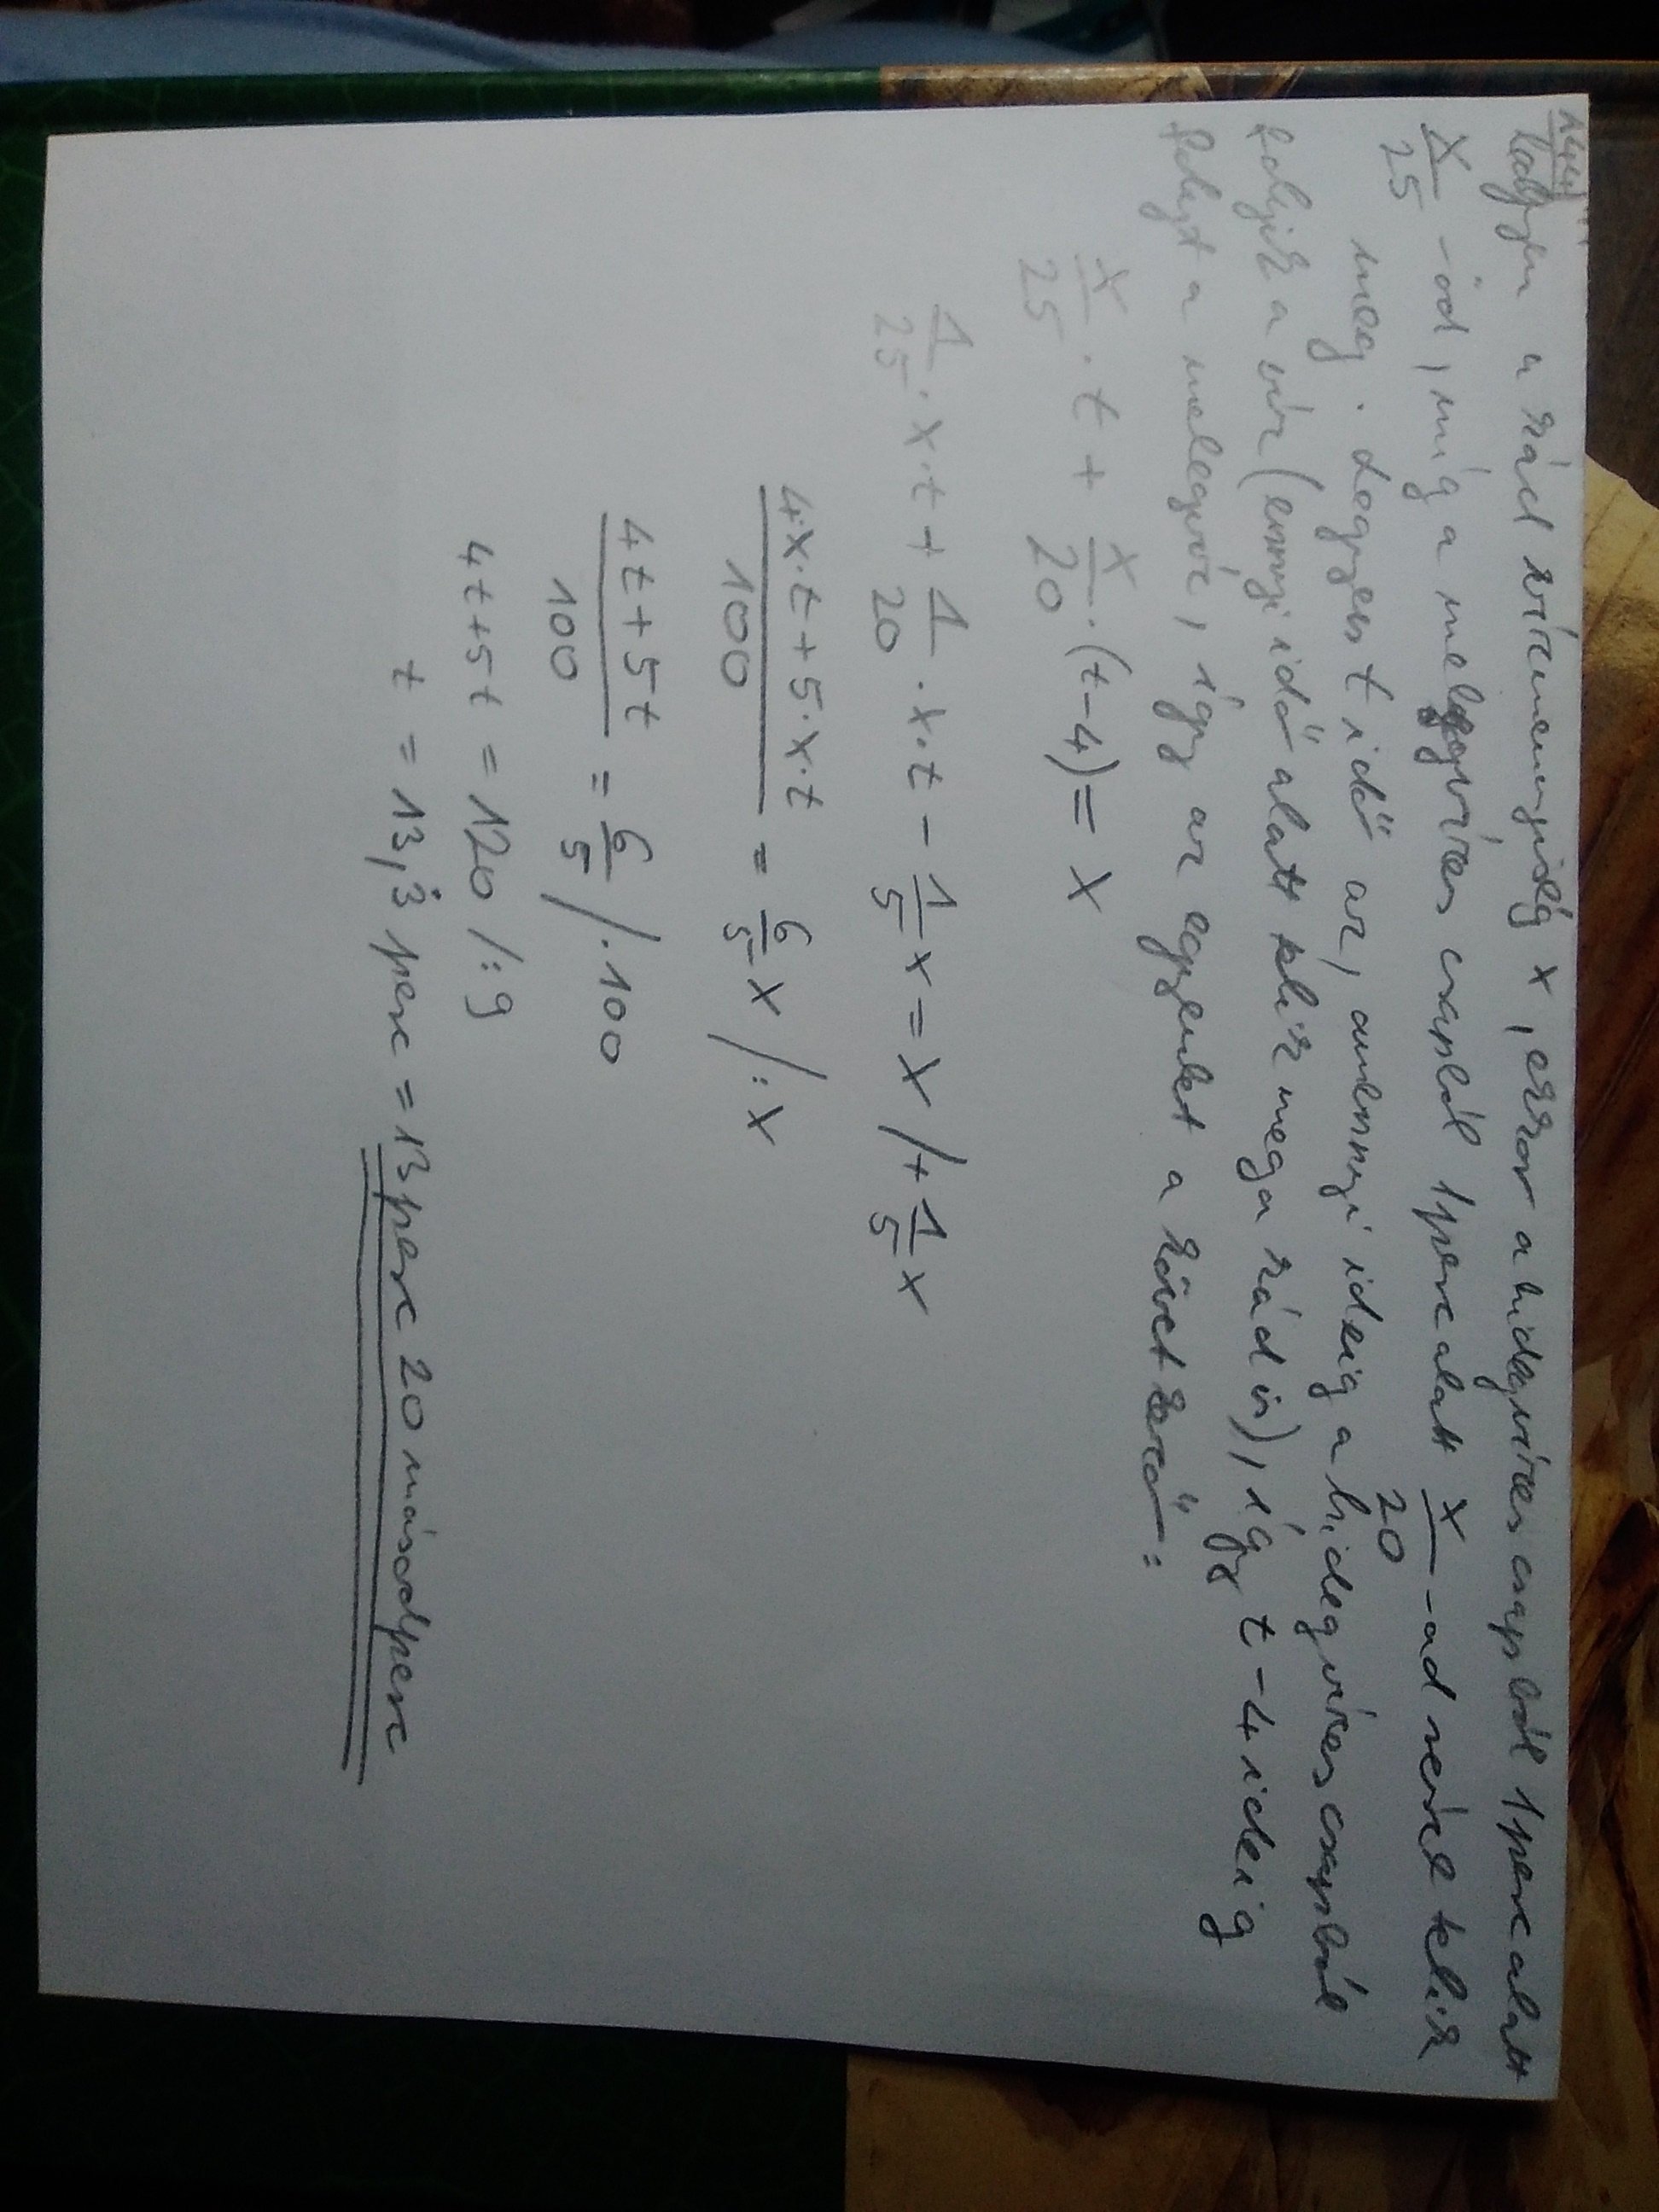 144)
Legyen a kád vízmennyiség x, ekkor a hidegvizes csapból 1 perc alatt
x/25 -öd, míg a melegvizes csapból 1 perc alatt x/20 -ad rész telik
meg. Legyen t idő az, amennyi ideig a hidegvizes csapból
folyik a víz (ennyi idő alatt telik meg a kád is), így t-4 ideig
folyt a melegvíz, így az egyenlet a következő:
x/25 · t + x/20 · (t-4) = x
1/25 · x · t + 1/20 · x · t - 1/5 x = x /+ 1/5 x
4·x·t + 5·x·t / 100 = 6/5 x /: x
4t + 5t / 100 = 6/5 /· 100
4t + 5t = 120 /: 9
t = 13,3̇ perc = 13 perc 20 másodperc